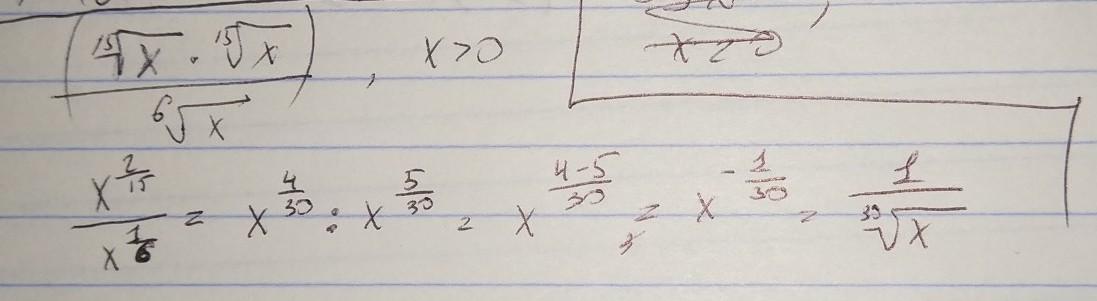 (¹⁵√x · ¹⁵√x) / ⁶√x , x > 0
x^(2/15) / x^(1/6) = x^(4/30) : x^(5/30) = x^((4-5)/30) = x^(-1/30) = 1 / ³⁰√x